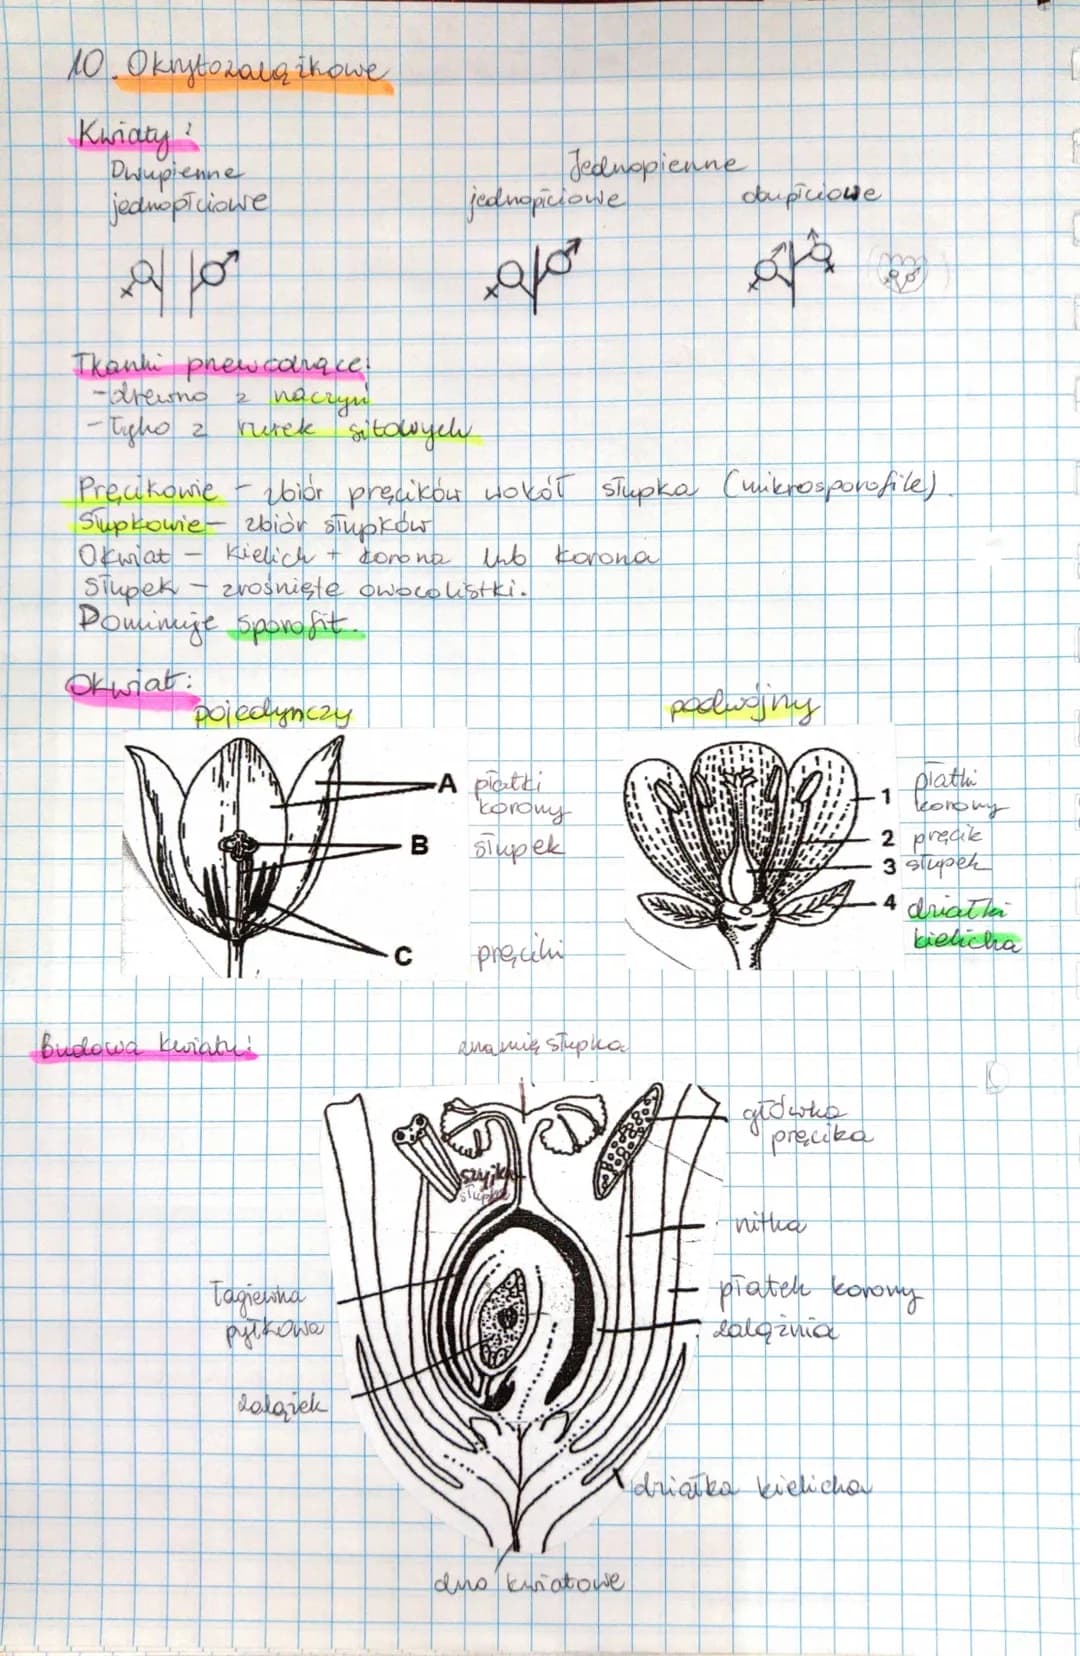 10. Okrytozalążkowe
Kwiaty:
Dwupienne
jednopłciowe
Jednopienne
jednopłciowe
obupłciowe
Tkanki przewodzące:
- drewno z naczyń
- łyko z rurek sitowych
Pręcikowie - zbiór pręcików wokół słupka (mikrosporofile).
Słupkowie - zbiór słupków
Okwiat - kielich + korona lub korona
Słupek - zrośnięte owocolistki.
Dominuje sporofit.
Okwiat:
pojedynczy
podwójny
A płatki korony
B słupek
C pręciki
1 płatki korony
2 pręcik
3 słupek
4 działki kielicha
Budowa kwiatu:
znamię słupka
główka
pręcika
szyjka
słupka
nitka
łagiewka
pyłkowa
płatek korony
zalążnia
zalążek
działka kielicha
dno kwiatowe